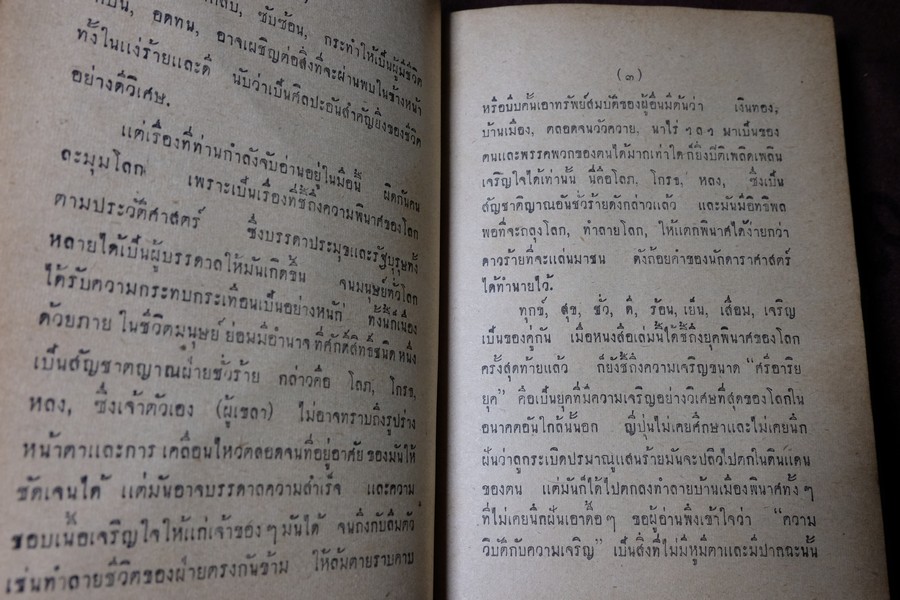 กลับ, ซับซ้อน, กระทำให้เป็นผู้มีชีวิต
อดทน, อาจเผชิญต่อสิ่งที่จะผ่านพบในข้างหน้า
ทั้งในแง่ร้ายและดี นับว่าเป็นศิลปะอันสำคัญยิ่งของชีวิต
อย่างดีวิเศษ.
แต่เรื่องที่ท่านกำลังจับอ่านอยู่ในมือนี้ ผิดกันคน
ละมุมโลก เพราะเป็นเรื่องที่ชี้ถึงความพินาศของโลก
ตามประวัติศาสตร์ ซึ่งบรรดาประมุขและรัฐบุรุษทั้ง
หลายได้เป็นผู้บรรดาลให้มันเกิดขึ้น จนมนุษย์ทั่วโลก
ได้รับความกระทบกระเทือนเป็นอย่างหนัก ทั้งนี้ก็เนื่อง
ด้วยภาย ในชีวิตมนุษย์ ย่อมมีอำนาจ ที่ศักดิ์สิทธิ์ชนิด หนึ่ง
เป็นสัญชาตญาณฝ่ายชั่วร้าย กล่าวคือ โลภ, โกรธ,
หลง, ซึ่งเจ้าตัวเอง (ผู้เขลา) ไม่อาจทราบถึงรูปร่าง
หน้าตาและการ เคลื่อนไหวตลอดจนที่อยู่อาศัย ของมันให้
ชัดเจนได้ แต่มันอาจบรรดาลความสำเร็จ และความ
ชอบเนื้อเจริญใจให้แก่เจ้าของ ๆ มันได้ จนถึงกับลืมตัว
เช่นทำลายชีวิตของฝ่ายตรงกันข้าม ให้ล้มตายราบคาบ
(๓)
หรือบีบคั้นเอาทรัพย์สมบัติของผู้อื่นมีต้นว่า เงินทอง,
บ้านเมือง, ตลอดจนวัวควาย, นาไร่ ฯลฯ มาเป็นของ
ตนและพรรคพวกของตนได้มากเท่าใด ก็ยิ่งปีติเพลิดเพลิน
เจริญใจได้เท่านั้น นี่คือโลภ, โกรธ, หลง, ซึ่งเป็น
สัญชาติญาณอันชั่วร้ายดังกล่าวแล้ว และมันมีอิทธิพล
พอที่จะถลุงโลก, ทำลายโลก, ให้แตกพินาศได้ง่ายกว่า
ดาวร้ายที่จะแล่นมาชน ดังถ้อยคำของนักดาราศาสตร์
ได้ทำนายไว้.
ทุกข์, สุข, ชั่ว, ดี, ร้อน, เย็น, เสื่อม, เจริญ
เป็นของคู่กัน เมื่อหนังสือเล่มนี้ได้ชี้ถึงยุคพินาศของโลก
ครั้งสุดท้ายแล้ว ก็ยังชี้ถึงความเจริญขนาด “ศรีอาริย
ยุค” คือเป็นยุคที่มีความเจริญอย่างวิเศษที่สุดของโลกใน
อนาคตอันใกล้นั้นอีก ญี่ปุ่นไม่เคยศึกษาและไม่เคยนึก
ฝันว่าลูกระเบิดปรมาณูแสนร้ายมันจะปลิวไปตกในดินแดน
ของตน แต่มันก็ได้ไปตกลงทำลายบ้านเมืองพินาศทั้ง ๆ
ที่ไม่เคยนึกฝันเอาดื้อ ๆ ขอผู้อ่านพึงเข้าใจว่า “ความ
วิบัติกับความเจริญ” เป็นสิ่งที่ไม่มีหูมีตาและมีปากฉะนั้น